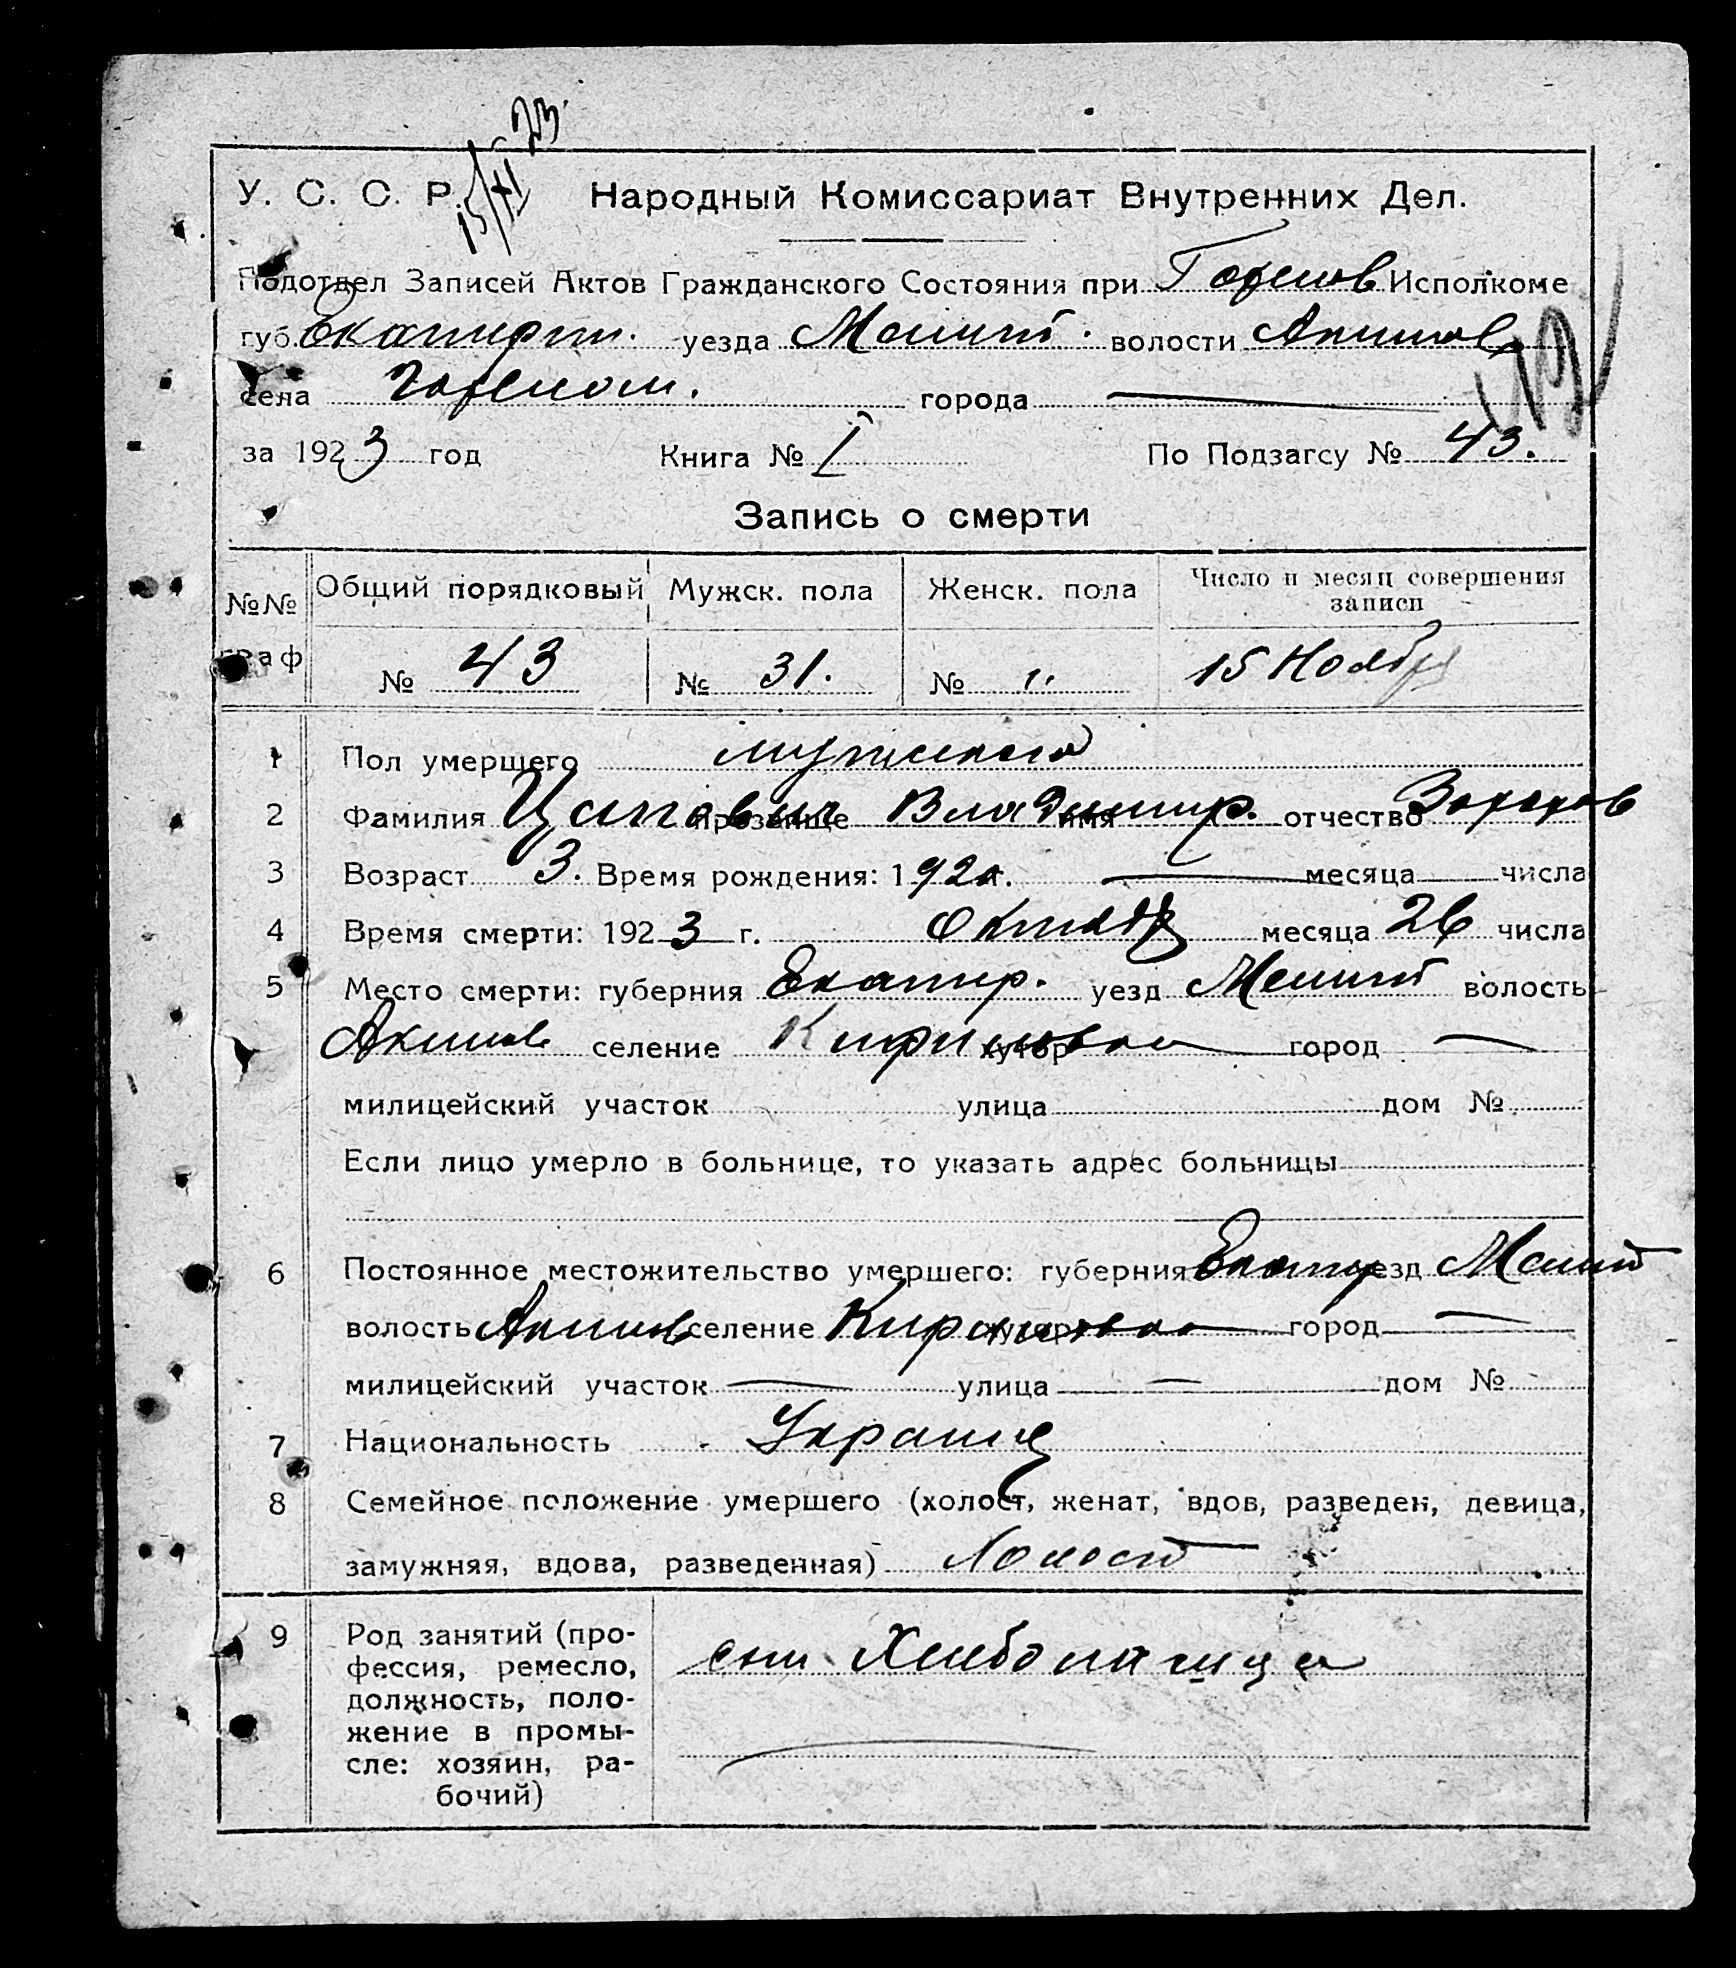 15/XI 23.
У. С. С. Р. Народный Комиссариат Внутренних Дел.
Подотдел Записей Актов Гражданского Состояния при Исполкоме
губ. Екатерин. уезда Мелит. волости Акимов
села города —
за 1923 год Книга № I По Подзагсу № 43.
Запись о смерти
№№ граф Общий порядковый Мужск. пола Женск. пола Число и месяц совершения записи
№ 43 № 31. № 15 Ноября
1 Пол умершего мужского
2 Фамилия прозвище Владимир. имя отчество
3 Возраст 3. Время рождения: 192 г. — месяца числа
4 Время смерти: 1923 г. Октябр месяца 26 числа
5 Место смерти: губерния Екатер. уезд Мелит волость
Акимов селение Кириловка хутор город —
милицейский участок улица дом №
Если лицо умерло в больнице, то указать адрес больницы
6 Постоянное местожительство умершего: губерния Екатер уезд Мелит
волость Акимов селение Кириловка хутор город —
милицейский участок — улица — дом №
7 Национальность Украинец
8 Семейное положение умершего (холост, женат, вдов, разведен, девица,
замужняя, вдова, разведенная) Холост
9 Род занятий (про-
фессия, ремесло,
должность, поло-
жение в промы-
сле: хозяин, ра-
бочий)
сын Хлебопашца